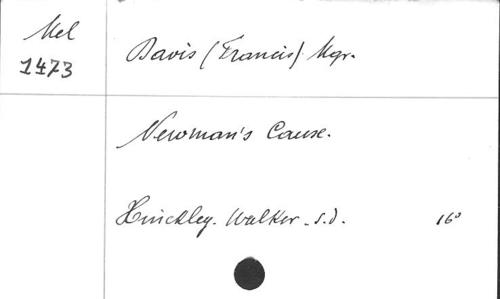 Mel
1473
Davis (Francis) Mgr.
Newman's Cause.
Hinckley. Walker. s.d. 16°